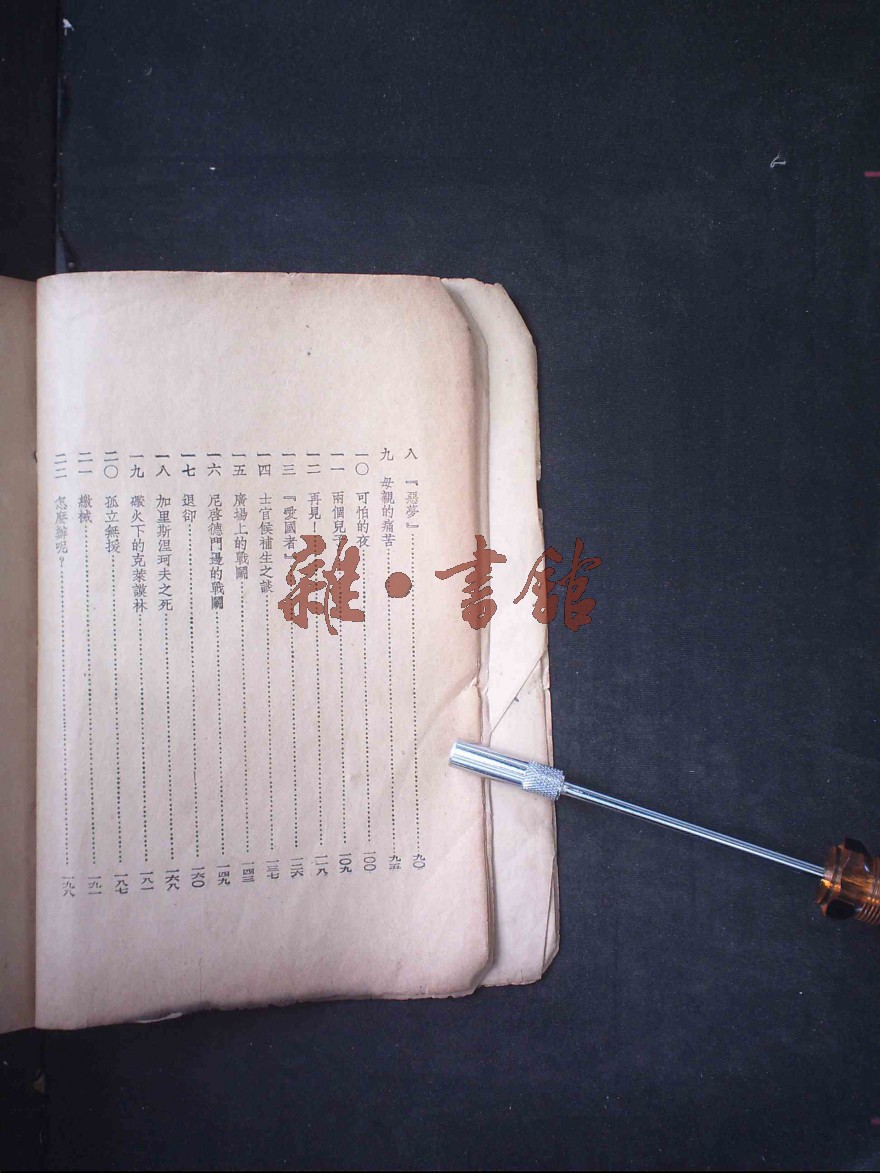 八 『惡夢』……九〇
九 母親的痛苦……九五
一〇 可怕的夜……一〇〇
一一 兩個兒子……一〇九
一二 再見！……一一八
一三 『愛國者』……一二六
一四 士官候補生之談……一三七
一五 廣場上的戰鬭……一四三
一六 尼啓德門邊的戰鬭……一四九
一七 退卻……一六〇
一八 加里斯涅珂夫之死……一六八
一九 礮火下的克萊謨林……一八一
二〇 孤立無援……一八七
二一 繳械……一九一
二二 怎麼辦呢？……一九八
雜·書館